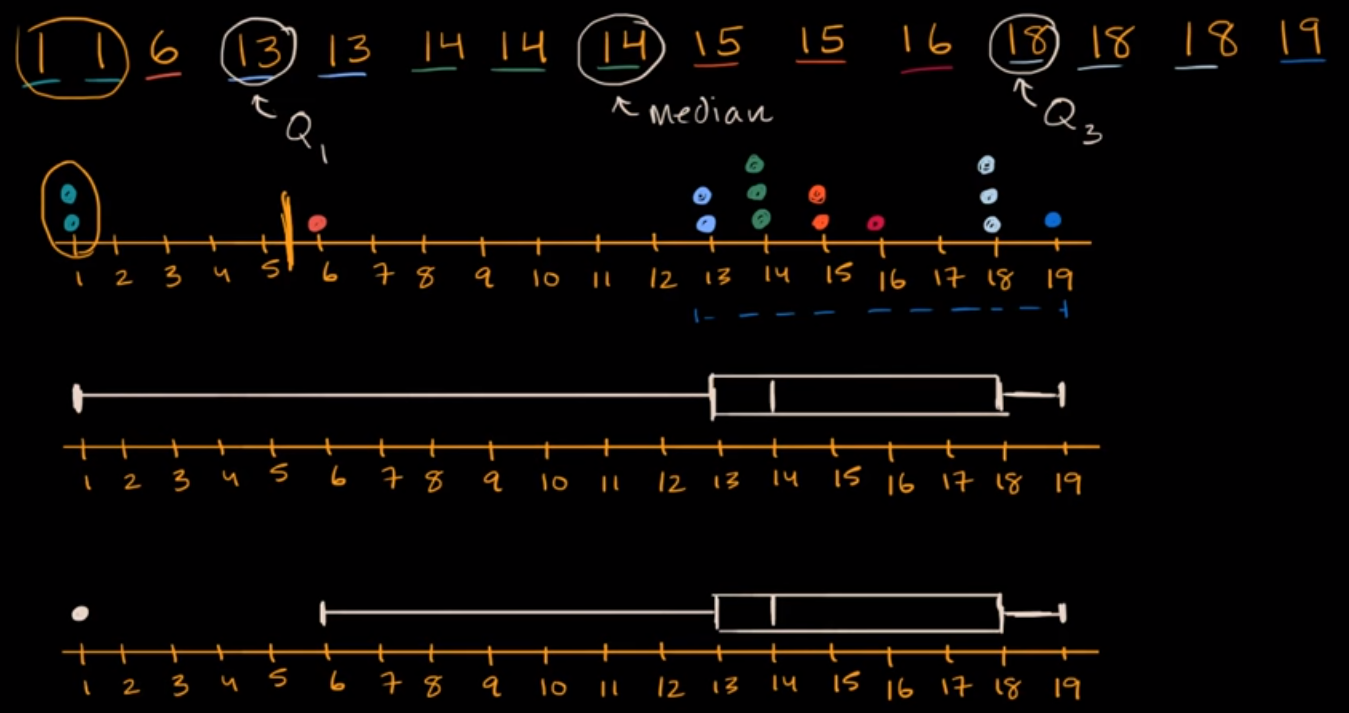 1 1 6 13 13 14 14 14 15 15 16 18 18 18 19
Q1 Median Q3
1 2 3 4 5 6 7 8 9 10 11 12 13 14 15 16 17 18 19
1 2 3 4 5 6 7 8 9 10 11 12 13 14 15 16 17 18 19
1 2 3 4 5 6 7 8 9 10 11 12 13 14 15 16 17 18 19